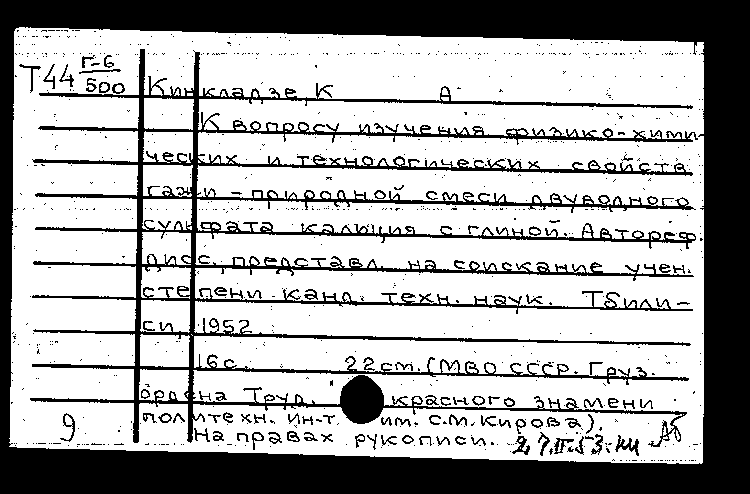 Т44 Г-6
500
Кинкладзе, К А
К вопросу изучения физико-хими-
ческих и технологических свойств
гажи - природной смеси двуводного
сульфата кальция с глиной. Автореф.
дисс., представл. на соискание учен.
степени канд. техн. наук. Тбили-
си, 1952.
16с. 22см. (МВО СССР. Груз.
ордена Труд. красного знамени
политехн. ин-т им. С.М.Кирова).
На правах рукописи.
9